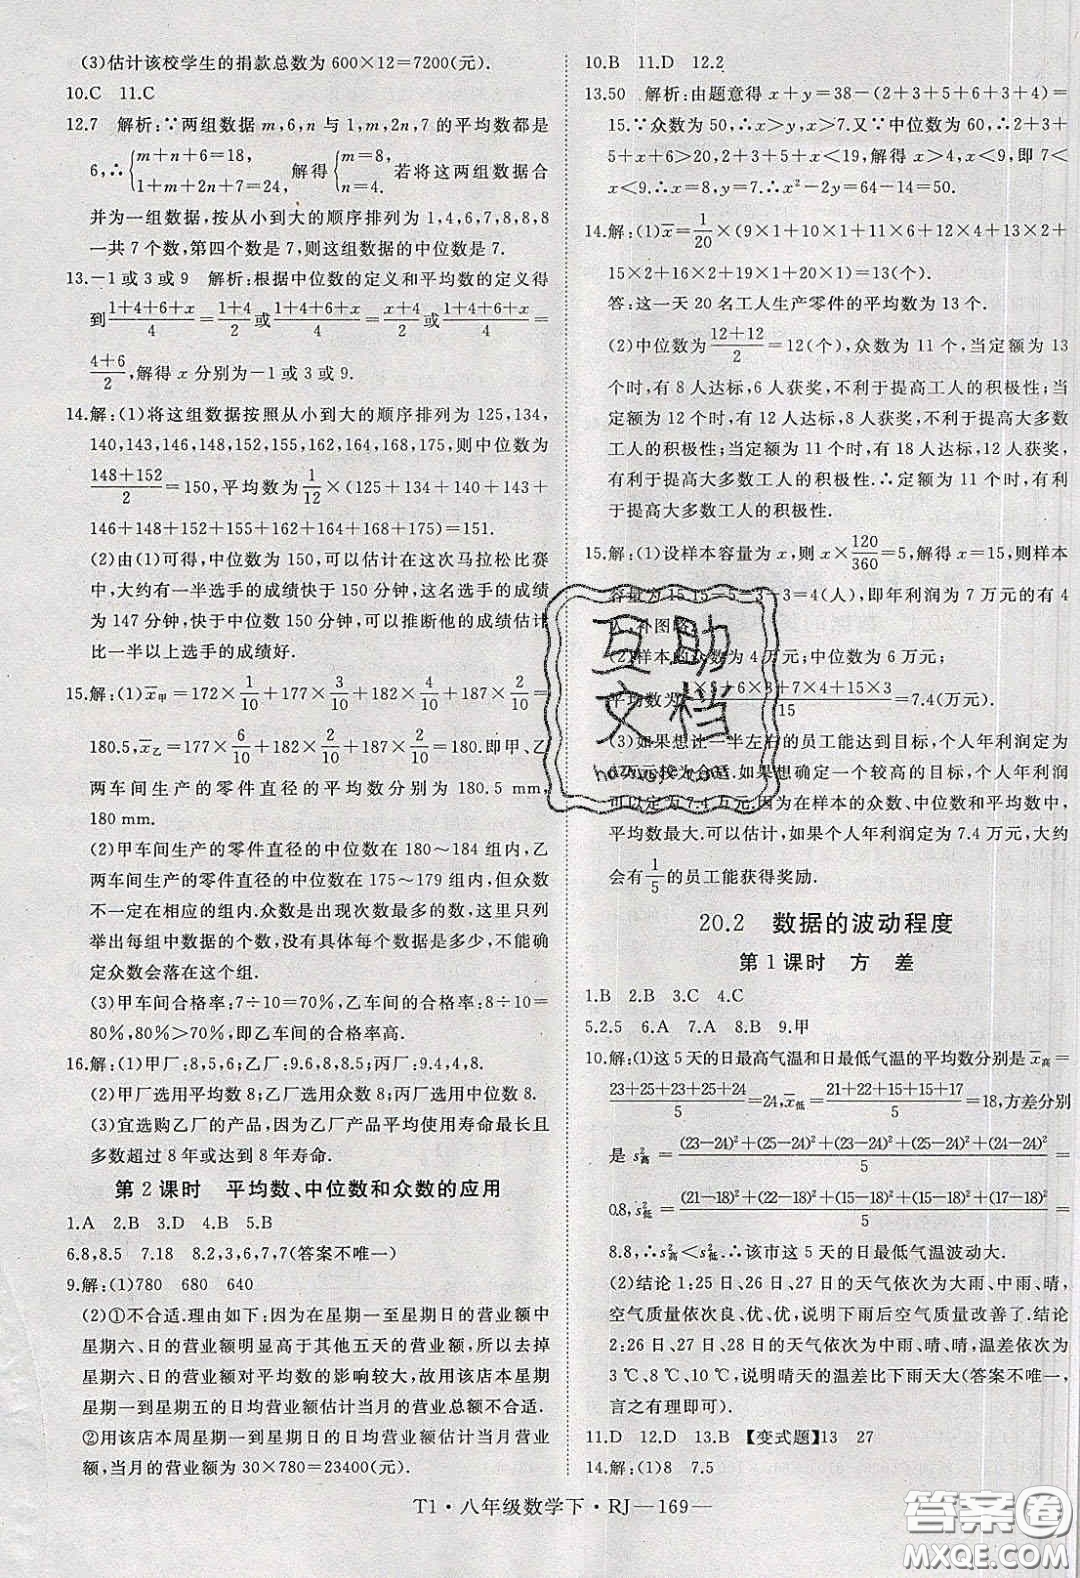 (3)估计该校学生的捐款总数为600×12=7200(元).
10.C 11.C
12.7 解析:∵两组数据m,6,n与1,m,2n,7的平均数都是
6,∴{m+n+6=18, 1+m+2n+7=24, 解得{m=8, n=4. 若将这两组数据合
并为一组数据,按从小到大的顺序排列为1,4,6,7,8,8,8
一共7个数,第四个数是7,则这组数据的中位数是7.
13.-1或3或9 解析:根据中位数的定义和平均数的定义得
到(1+4+6+x)/4=(1+4)/2或(1+4+6+x)/4=(4+x)/2或(1+4+6+x)/4=
(4+6)/2,解得x分别为-1或3或9.
14.解:(1)将这组数据按照从小到大的顺序排列为125,134,
140,143,146,148,152,155,162,164,168,175,则中位数为
(148+152)/2=150,平均数为1/12×(125+134+140+143+
146+148+152+155+162+164+168+175)=151.
(2)由(1)可得,中位数为150,可以估计在这次马拉松比赛
中,大约有一半选手的成绩快于150分钟,有一半选手的
成绩慢于150分钟,这名选手的成绩
为147分钟,快于中位数150分钟,可以推断他的成绩估计
比一半以上选手的成绩好.
15.解:(1)x̄甲=172×1/10+177×1/10+182×4/10+187×2/10=
180.5,x̄乙=177×6/10+182×2/10+187×2/10=180.即甲、乙
两车间生产的零件直径的平均数分别为180.5 mm,
180 mm.
(2)甲车间生产的零件直径的中位数在180～184组内,乙
两车间生产的零件直径的中位数在175～179组内,但众数
不一定在相应的组内.众数是出现次数最多的数,这里只列
举出每组中数据的个数,没有具体每个数据是多少,不能确
定众数会落在这个组.
(3)甲车间合格率:7÷10=70%,乙车间合格率:8÷10=
80%,80%>70%,即乙车间的合格率高.
16.解:(1)甲厂:8,5,6;乙厂:9.6,8,8.5;丙厂:9.4,4,8.
(2)甲厂选用平均数8;乙厂选用众数8;丙厂选用中位数8.
(3)宜选购乙厂的产品,因为乙厂产品平均使用寿命最长且
多数超过8年或达到8年寿命.
第2课时 平均数、中位数和众数的应用
1.A 2.B 3.D 4.B 5.B
6.8,8.5 7.18 8.2,3,6,7,7(答案不唯一)
9.解:(1)780 680 640
(2)①不合适.理由如下:因为在星期一至星期日的营业额中
星期六、日的营业额明显高于其他五天的营业额,所以去掉
星期六、日的营业额对平均数的影响较大.故用该店本周星
期一到星期五的日均营业额估计当月的营业总额不合适.
②用该店本周星期一到星期日的日均营业额估计当月营业
额,当月的营业额为30×780=23400(元).
10.B 11.D 12.2
13.50 解析:由题意得x+y=38-(2+3+5+6+3+4)=
15.∵众数为50,∴x>y,x>7.又∵中位数为60,∴2+3+
5+x<y+6+3+4,解得x>4,x<9,即7<
x<9.∴x=8,y=7.∴x²-2y=64-14=50.
14.解:(1)x̄=1/20×(9×1+10×1+11×6+12×4+13×2+
15×2+16×2+19×1+20×1)=13(个).
答:这一天20名工人生产零件的平均数为13个.
(2)中位数为(12+12)/2=12(个),众数为11个,当定额为13
个时,有8人达标,6人获奖,不利于提高工人的积极性;当
定额为12个时,有12人达标,8人获奖,不利于提高大多数
工人的积极性;当定额为11个时,有18人达标,12人获奖,
有利于提高大多数工人的积极性.∴定额为11个时,有利
于提高大多数工人的积极性.
15.解:(1)设样本容量为x,则x×120/360=5,解得x=15,则样本
容量为15.15-5-3-3=4(人),即年利润为7万元的有4
人,补图略.
(2)样本的众数为4万元;中位数为6万元;
=7.4(万元).
(3)如果想让一半左右的员工能达到目标,个人年利润定为
万元较为合适.如果想确定一个较高的目标,个人年利润
可以定为7.4万元.因为在样本的众数、中位数和平均数中,
平均数最大.可以估计,如果个人年利润定为7.4万元,大约
会有1/5的员工能获得奖励.
20.2 数据的波动程度
第1课时 方 差
1.B 2.B 3.C 4.C
5.2.5 6.A 7.A 8.B 9.甲
10.解:(1)这5天的日最高气温和日最低气温的平均数分别是x̄高=
(23+25+23+25+24)/5=24,x̄低=(21+22+15+15+17)/5=18,方差分别
是s²高=[(23-24)²+(25-24)²+(23-24)²+(25-24)²+(24-24)²]/5=
0.8,s²低=[(21-18)²+(22-18)²+(15-18)²+(15-18)²+(17-18)²]/5=
8.8,∴s²高<s²低.∴该市这5天的日最低气温波动大.
(2)结论1:25日、26日、27日的天气依次为大雨、中雨、晴,
空气质量依次良、优、优,说明下雨后空气质量改善了.结论
2:26日、27日、28日的天气依次为中雨、晴、晴,温差依次为
3 ℃、8 ℃、10 ℃,说明晴天的温差比下雨天大(答案不唯一,
言之有理即可).
11.D 12.D 13.B 【变式题】13 27
14.解:(1)8 7.5
T1·八年级数学下·RJ—169—
互助
文档
hdzwsyc.com
答案圈
MXQE.COM